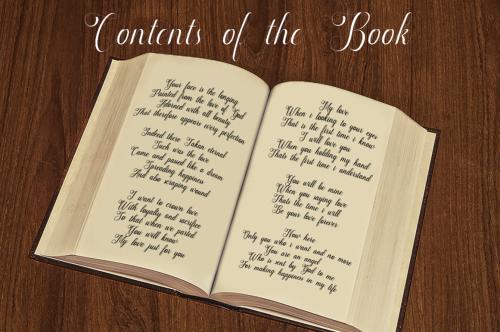 Contents of the Book
Your face is the longing
Painted from the love of God
Adorned with all beauty
That therefore appears every perfection
Indeed there Token eternal
Such was the love
Came and passed like a dream
Spreading happiness
And also scraping wound
I want to create love
With loyalty and sacrifice
So that when we parted
You will know
My love just for you
My love
When i looking to your eyes
That is the first time i know
I will love you
When you holding my hand
Thats the first time i understand
You will be mine
When you saying love
Thats the time i will
Be your love forever
Now here
Only you who i want and no more
You are an angel
Who is sent by God to me
For making happiness in my life